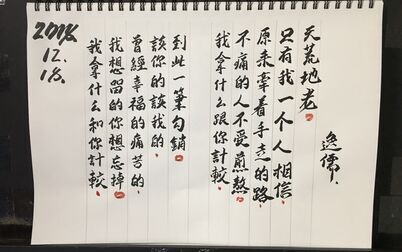 2018.
12.
18.
我拿什么和你計較.
我想留的你想忘掉
曾經幸福的痛苦的.
該你的該我的.
到此一筆勾銷
我拿什么跟你計較.
不痛的人不受煎熬
原来牽着手走的路
只有我一个人相信
天荒地老
逸儒.